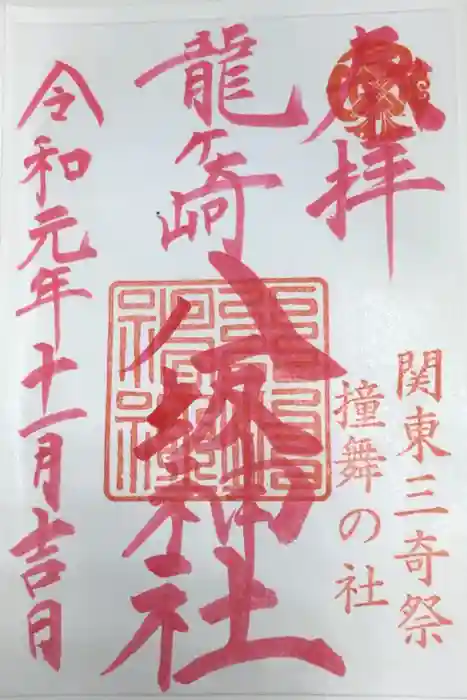 奉拝
関東三奇祭
撞舞の社
龍ヶ崎
八坂神社
令和元年十一月吉日